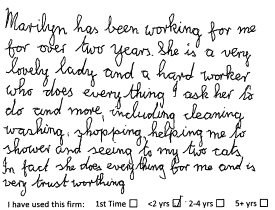 Marilyn has been working for me
for over two years. She is a very
lovely lady and a hard worker
who does everything I ask her to
do and more, including cleaning,
washing, shopping, helping me to
shower and seeing to my two cats.
In fact she does everything for me and is
very trust worthing
I have used this firm: 1st Time ☐ <2 yrs ☑ 2-4 yrs ☐ 5+ yrs ☐